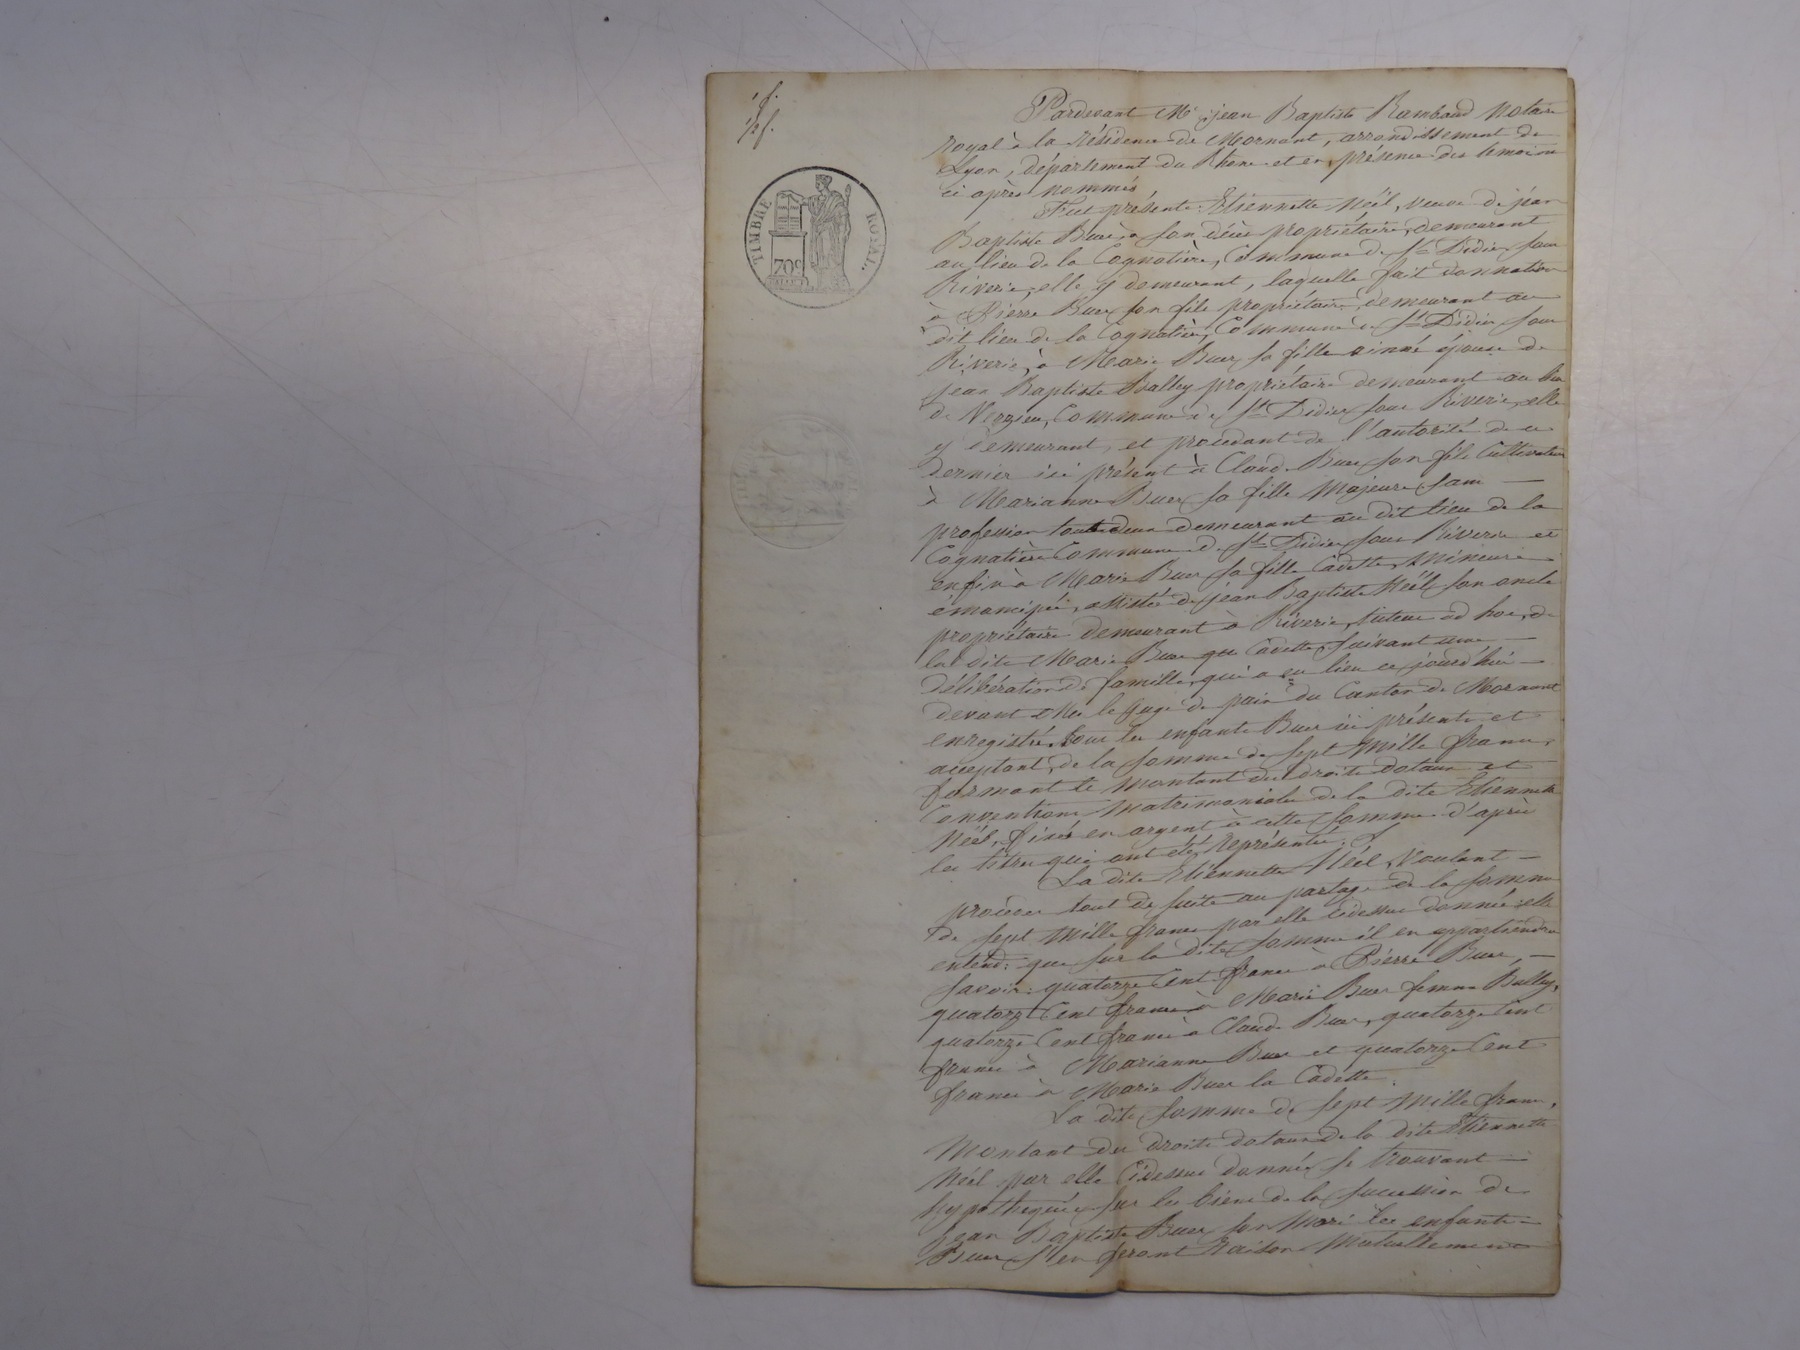 TIMBRE ROYAL.
70c
Pardevant Me jean Baptiste Rambaud Notaire
royal à la résidence de Mornant, arrondissement de
Lyon, département du Rhone et en présence des temoins
ci après nommés
Fut présente: Etiennette Néél, veuve de jean
Baptiste Buer, à son décès propriétaire, demeurant
au lieu de la Cognatière, Commune de St Didier sous
Riverie, elle y demeurant, laquelle fait donnation
à Pierre Buer son fils propriétaire, demeurant au
dit lieu de la Cognatière, Commune de St Didier sous
Riverie, à Marie Buer sa fille ainné épouse de
jean Baptiste Balley propriétaire demeurant au lieu
de Commune de St Didier sous Riverie, elle
y demeurant, et procedant de l'autorité de ce
dernier ici présent à Claude Buer son fils Cultivateur
à Marianne Buer sa fille Majeure sans
profession tous deux demeurant au dit lieu de la
Cognatière Commune de St Didier sous Riverie et
enfin à Marie Buer sa fille Cadette, Mineure
émancipée, assistée de jean Baptiste Néél son oncle
propriétaire demeurant à Riverie, tuteur ad hoc, de
la dite Marie Buer Cadette, suivant une
délibération de famille, qui a eu lieu ce jourd'hui
devant Mr le juge de paix du Canton de Mornant
enregistré, tous les enfants Buer ici présents et
acceptant, de la somme de sept Mille francs,
formant le Montant des droits dotaux et
Conventions Matrimoniales de la dite Etiennette
Néél, fixés en argent à cette somme d'après
les titres qui ont été représentés.
La dite Etiennette Néél, Voulant
procéder tout de suite au partage de la somme
de sept Mille francs par elle cidessus donnée, elle
entend: que sur la dite somme il en appartiendra
savoir: quatorze Cent francs à Pierre Buer,
quatorze Cent francs à Marie Buer femme Balley,
quatorze Cent francs à Claude Buer, quatorze Cent
francs à Marianne Buer et quatorze Cent
francs à Marie Buer la Cadette.
La dite somme de sept Mille francs,
Montant des droits dotaux de la dite Etiennette
Néél par elle Cidessus donnée se trouvant
hypothequée sur les biens de la succession de
jean Baptiste Buer son Mari les enfants
Buer s'en feront raison Mutuellement